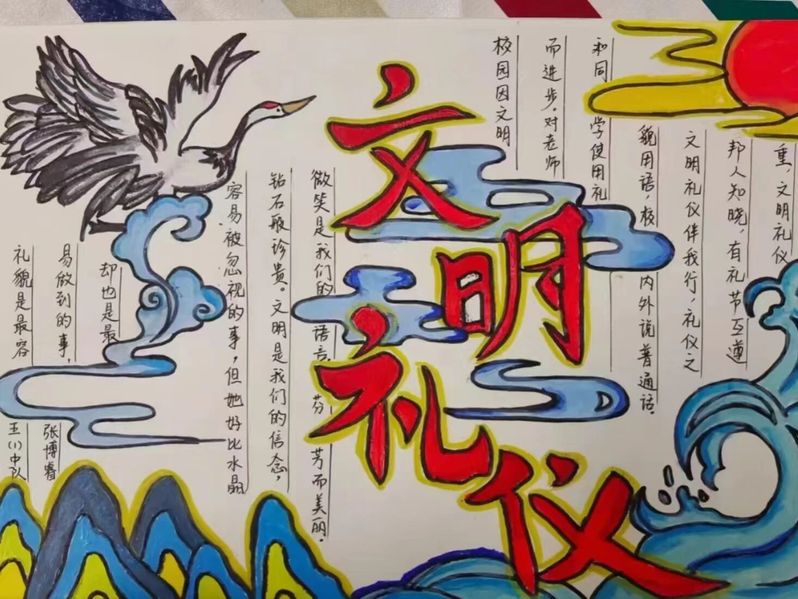 文明礼仪
礼貌是最容
易做到的事，
却也是最
容易被忽视的事，但她好比水晶
钻石般珍贵。文明是我们的信念，
微笑是我们的语言，芬芳而美丽。
校园因文明
而进步。对老师
和同学使用礼
貌用语，校内外说普通话。
文明礼仪伴我行，礼仪之
邦人知晓，有礼节互遵
重，文明礼仪
五(1)中队
张博睿